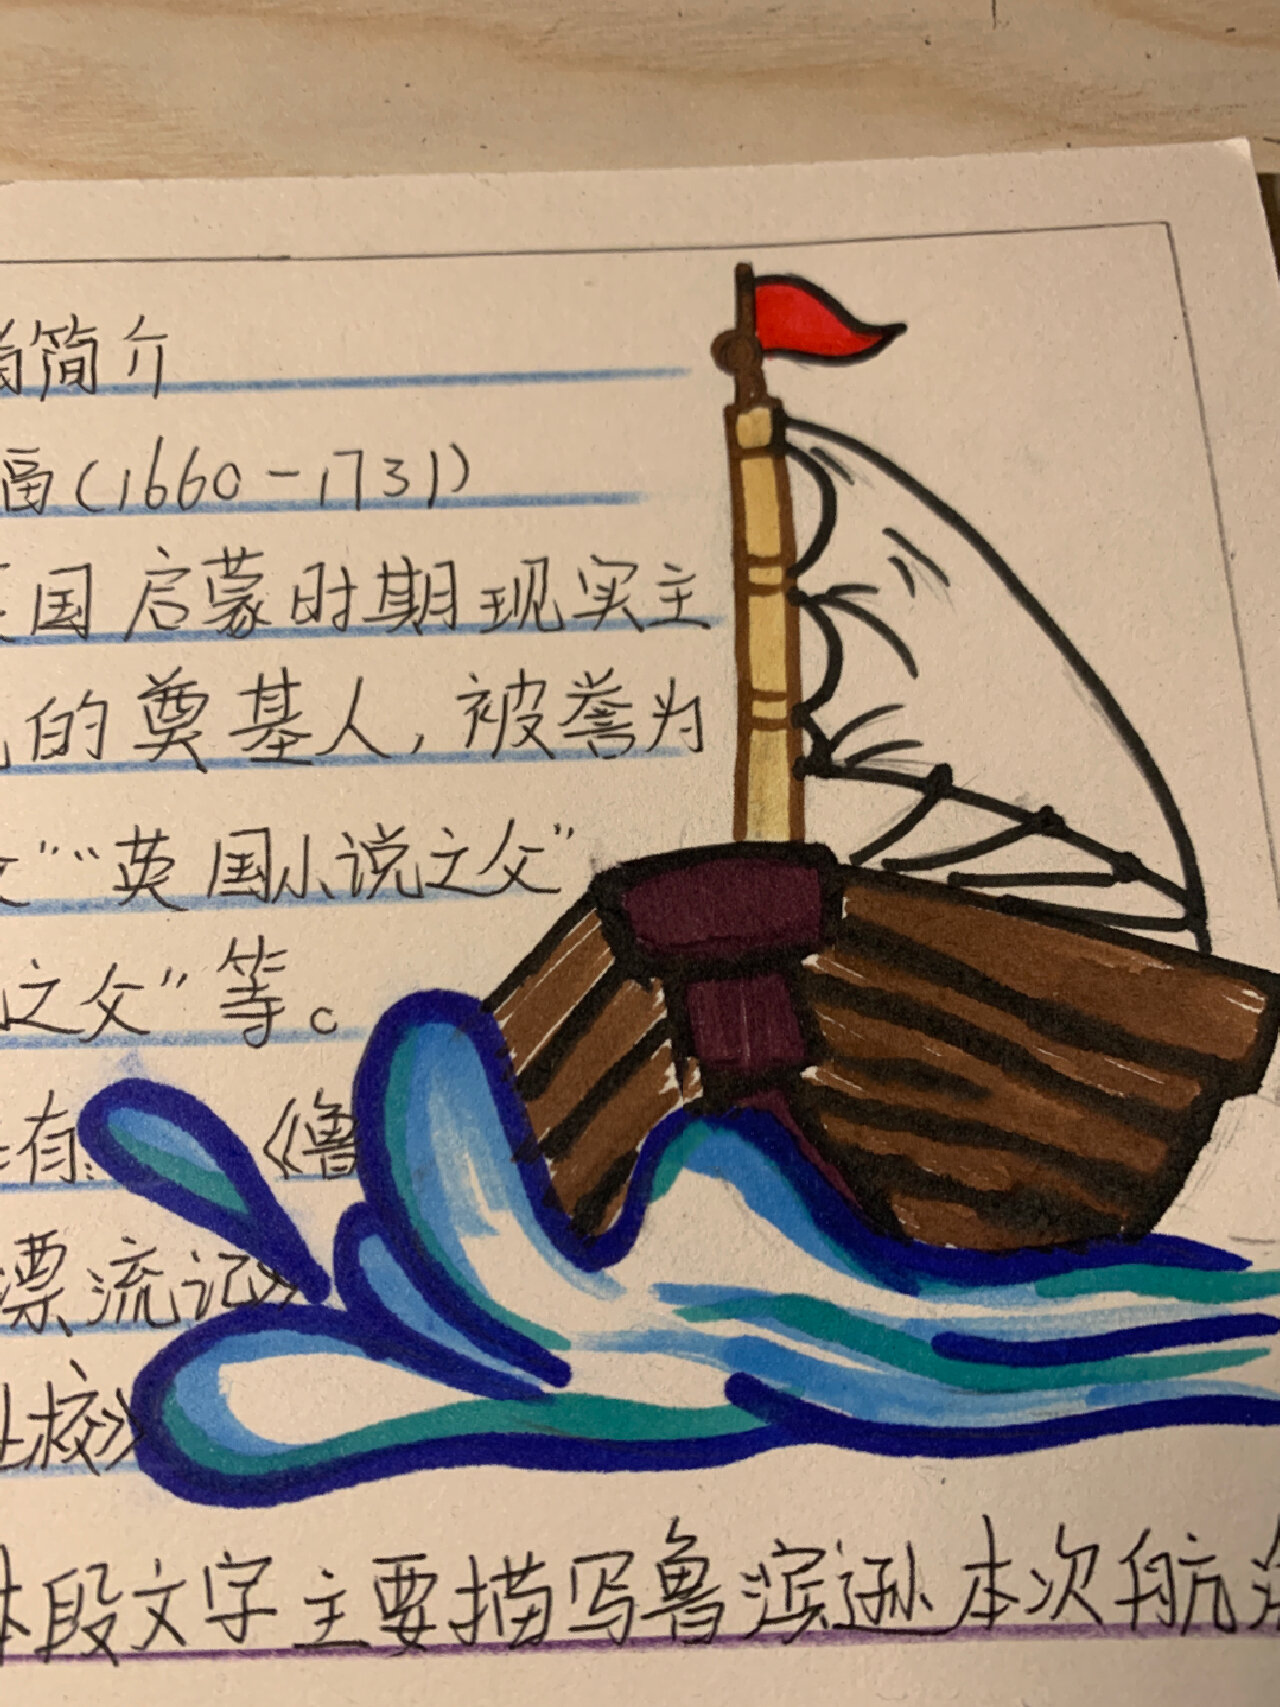 简介
福(1660-1731)
国启蒙时期现实主
的奠基人,被誉为
”“英国小说之父”
之父”等。
有:《鲁
漂流记》
校》
段文字主要描写鲁滨逊本次航